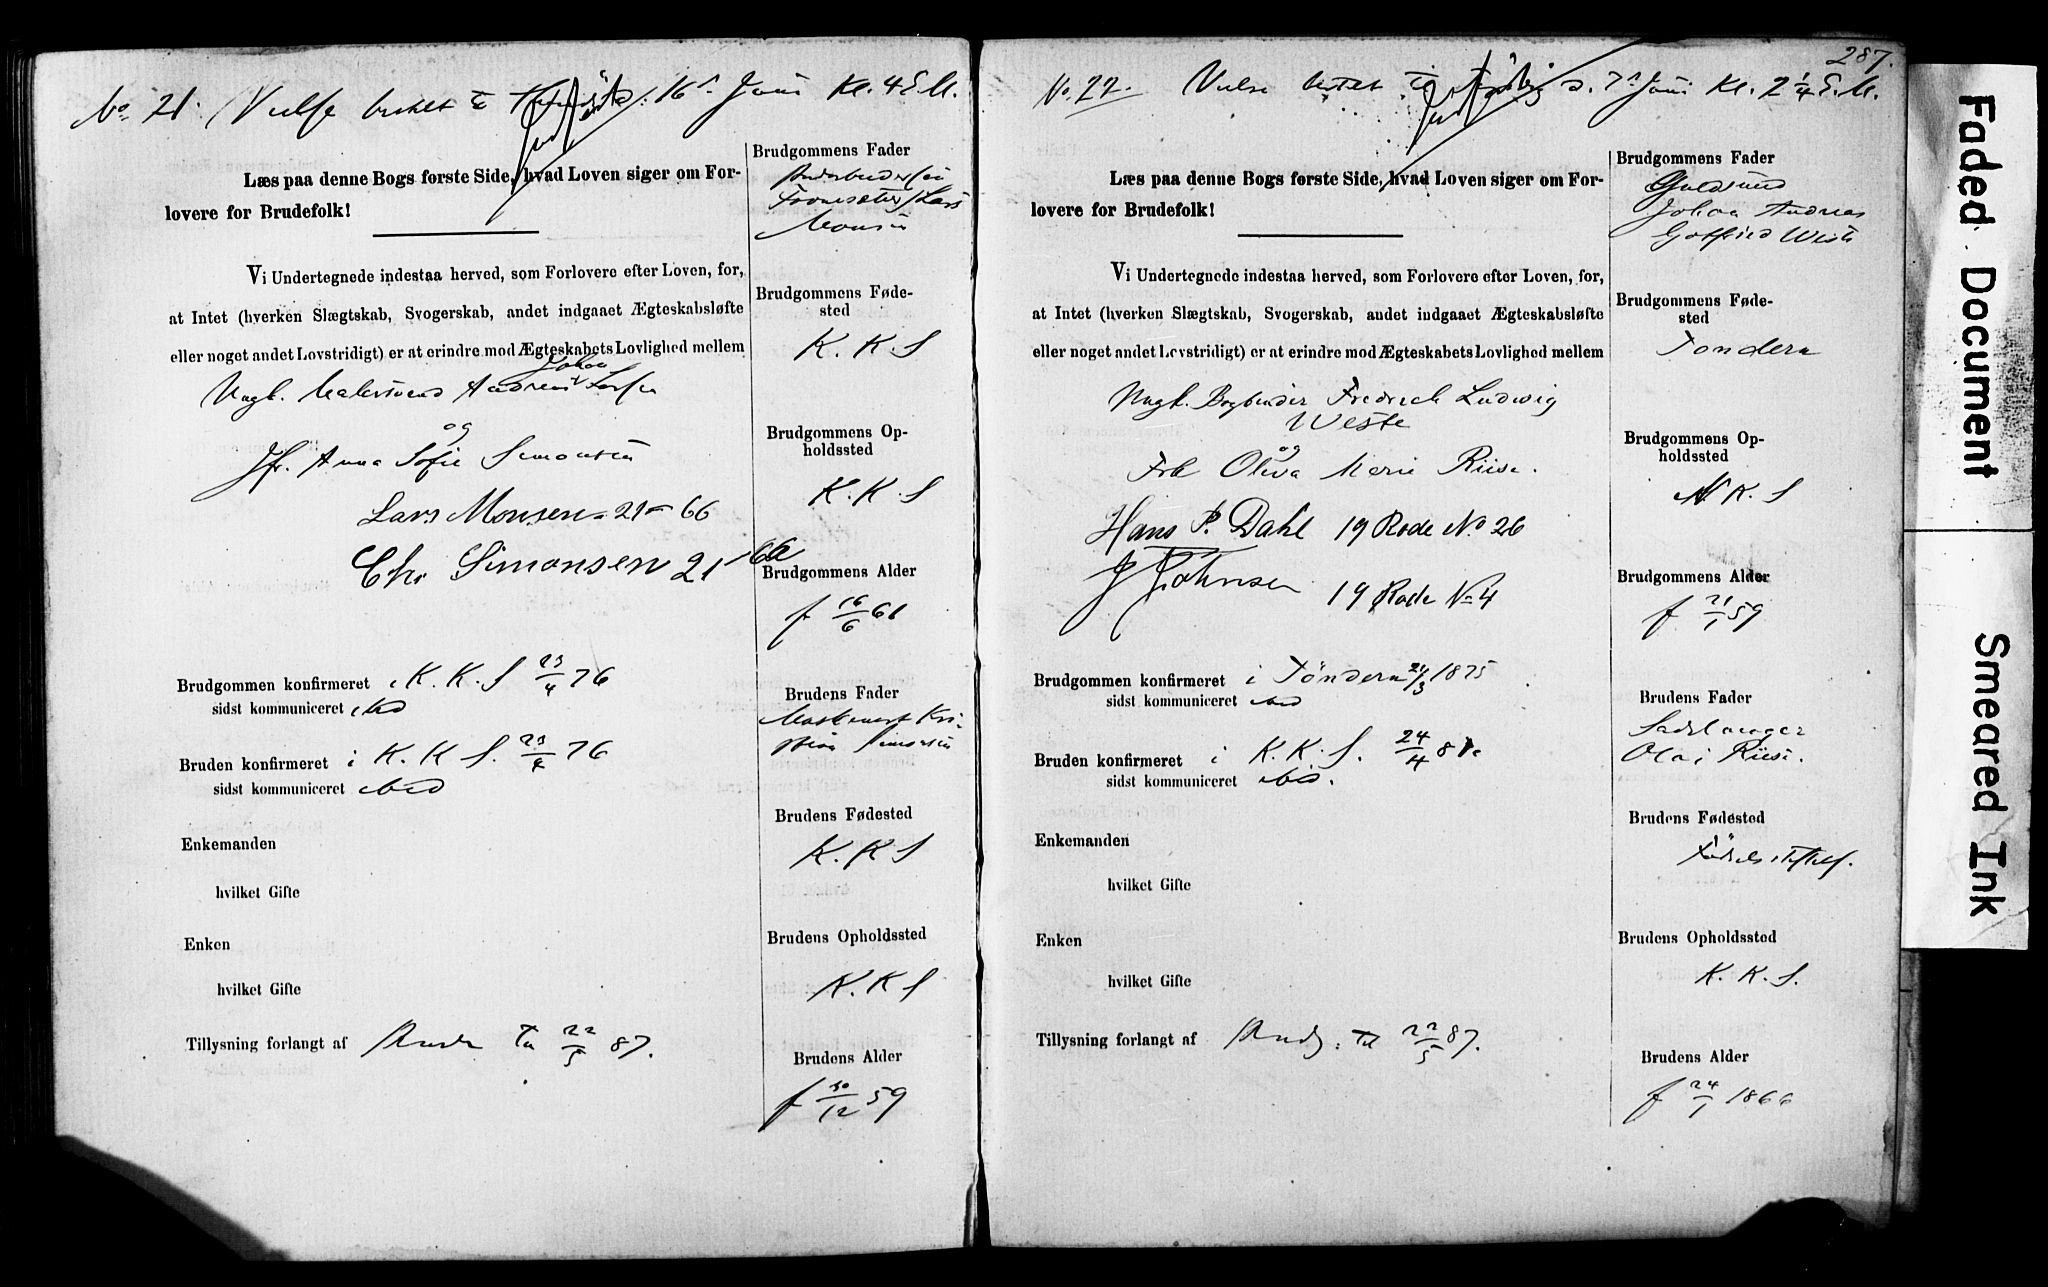 No 21. Vielse bestilt til 16de Juni Kl. 4 E.M.
Læs paa denne Bogs første Side, hvad Loven siger om For-
lovere for Brudefolk!
Vi Undertegnede indestaa herved, som Forlovere efter Loven, for,
at Intet (hverken Slægtskab, Svogerskab, andet indgaaet Ægteskabsløfte
eller noget andet Lovstridigt) er at erindre mod Ægteskabets Lovlighed mellem
Johan
Ungk. Malersvend Andreas Larsen
og
Jfr. Anna Sofie Simonsen
Lars Monsen - 21 - 66
Chr Simonsen 21 - 66
Brudgommen konfirmeret i K. K. S 23/4 76
sidst kommuniceret ibid
Bruden konfirmeret i K. K S. 23/4 76
sidst kommuniceret ibid
Enkemanden
hvilket Gifte
Enken
hvilket Gifte
Tillysning forlangt af Brudg. Til 22/5 87.
Brudgommens Fader
Lars
Monsen
Brudgommens Føde-
sted
K. K. S
Brudgommens Op-
holdssted
K. K. S
Brudgommens Alder
f 16/6 61
Brudens Fader
Kri-
stian Simonsen
Brudens Fødested
K. K S
Brudens Opholdssted
K. K S
Brudens Alder
f 30/12 59
287.
No. 22. Vielse bestilt til d. 7de Juni Kl. 2 1/4 E. M.
Læs paa denne Bogs første Side, hvad Loven siger om For-
lovere for Brudefolk!
Vi Undertegnede indestaa herved, som Forlovere efter Loven, for,
at Intet (hverken Slægtskab, Svogerskab, andet indgaaet Ægteskabsløfte
eller noget andet Lovstridigt) er at erindre mod Ægteskabets Lovlighed mellem
Ungk. Bogbinder Fredrich Ludwig
Weste
og
Frk Oliva Marie Riise.
Hans P. Dahl 19 Rode No 26
J Johnsen 19 Rode No 4
Brudgommen konfirmeret i Tøndern 21/3 1875
sidst kommuniceret ibid
Bruden konfirmeret i K. K. S. 24/4 81.
sidst kommuniceret ibid.
Enkemanden
hvilket Gifte
Enken
hvilket Gifte
Tillysning forlangt af Brudg. Til 22/5 87.
Brudgommens Fader
Guldsmed
Johan Andreas
Gotfried Weste
Brudgommens Føde-
sted
Tondern
Brudgommens Op-
holdssted
N K. S
Brudgommens Alder
f 21/1 59
Brudens Fader
Sadelmager
Olai Riise.
Brudens Fødested
Brudens Opholdssted
K. K. S.
Brudens Alder
f 24/1 1866
Faded Document
Smeared Ink